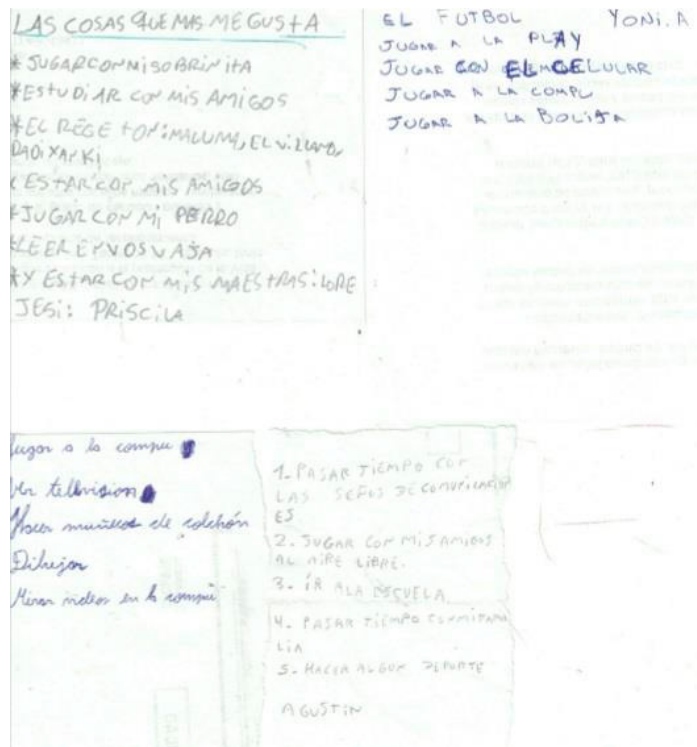 LAS COSAS QUE MAS ME GUSTA
* JUGAR CON MI SOBRINITA
* ESTUDIAR CON MIS AMIGOS
* EL REGE TON: MALUMA, EL VILLANO,
DADIXANKI
* ESTAR CON MIS AMIGOS
* JUGAR CON MI PERRO
* LEER EN VOS VAJA
* Y ESTAR CON MIS MAESTRAS: LORE
JESI: PRISCILA
EL FUTBOL YONI.A
JUGAR A LA PLAY
JUGAR CON EL CELULAR
JUGAR A LA COMPU
JUGAR A LA BOLITA
Jugar a la compu
Ver television
Hacer muñecos de colchón
Dibujar
Mirar videos en la compu
1. PASAR TIEMPO CON
LAS SEÑOS DE COMUNICACION
ES
2. JUGAR CON MIS AMIGOS
AL AIRE LIBRE.
3. IR A LA ESCUELA
4. PASAR TIEMPO CON MI FAMI
LIA
5. HACER ALGUN DEPORTE
AGUSTIN